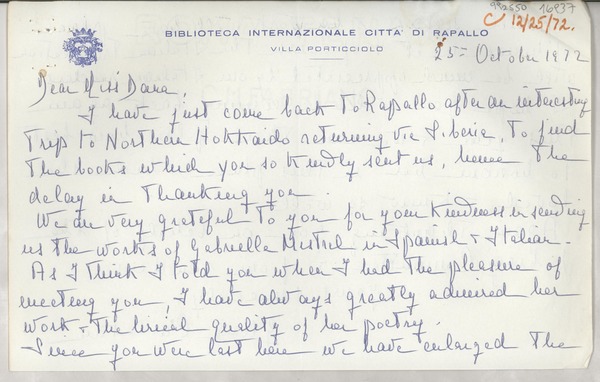 992550 16237
C 12/25/72.
BIBLIOTECA INTERNAZIONALE CITTÀ DI RAPALLO
VILLA PORTICCIOLO
25th October 1972
Dear Miss Dana,
I have just come back to Rapallo after an interesting
trip to Northern Hokkaido returning via Siberia, to find
the books which you so kindly sent us, hence the
delay in thanking you.
We are very grateful to you for your kindness in sending
us the works of Gabriella Mistral in Spanish & Italian.
As I think I told you when I had the pleasure of
meeting you, I have always greatly admired her
work & the lirical quality of her poetry.
Since you were last here we have enlarged the